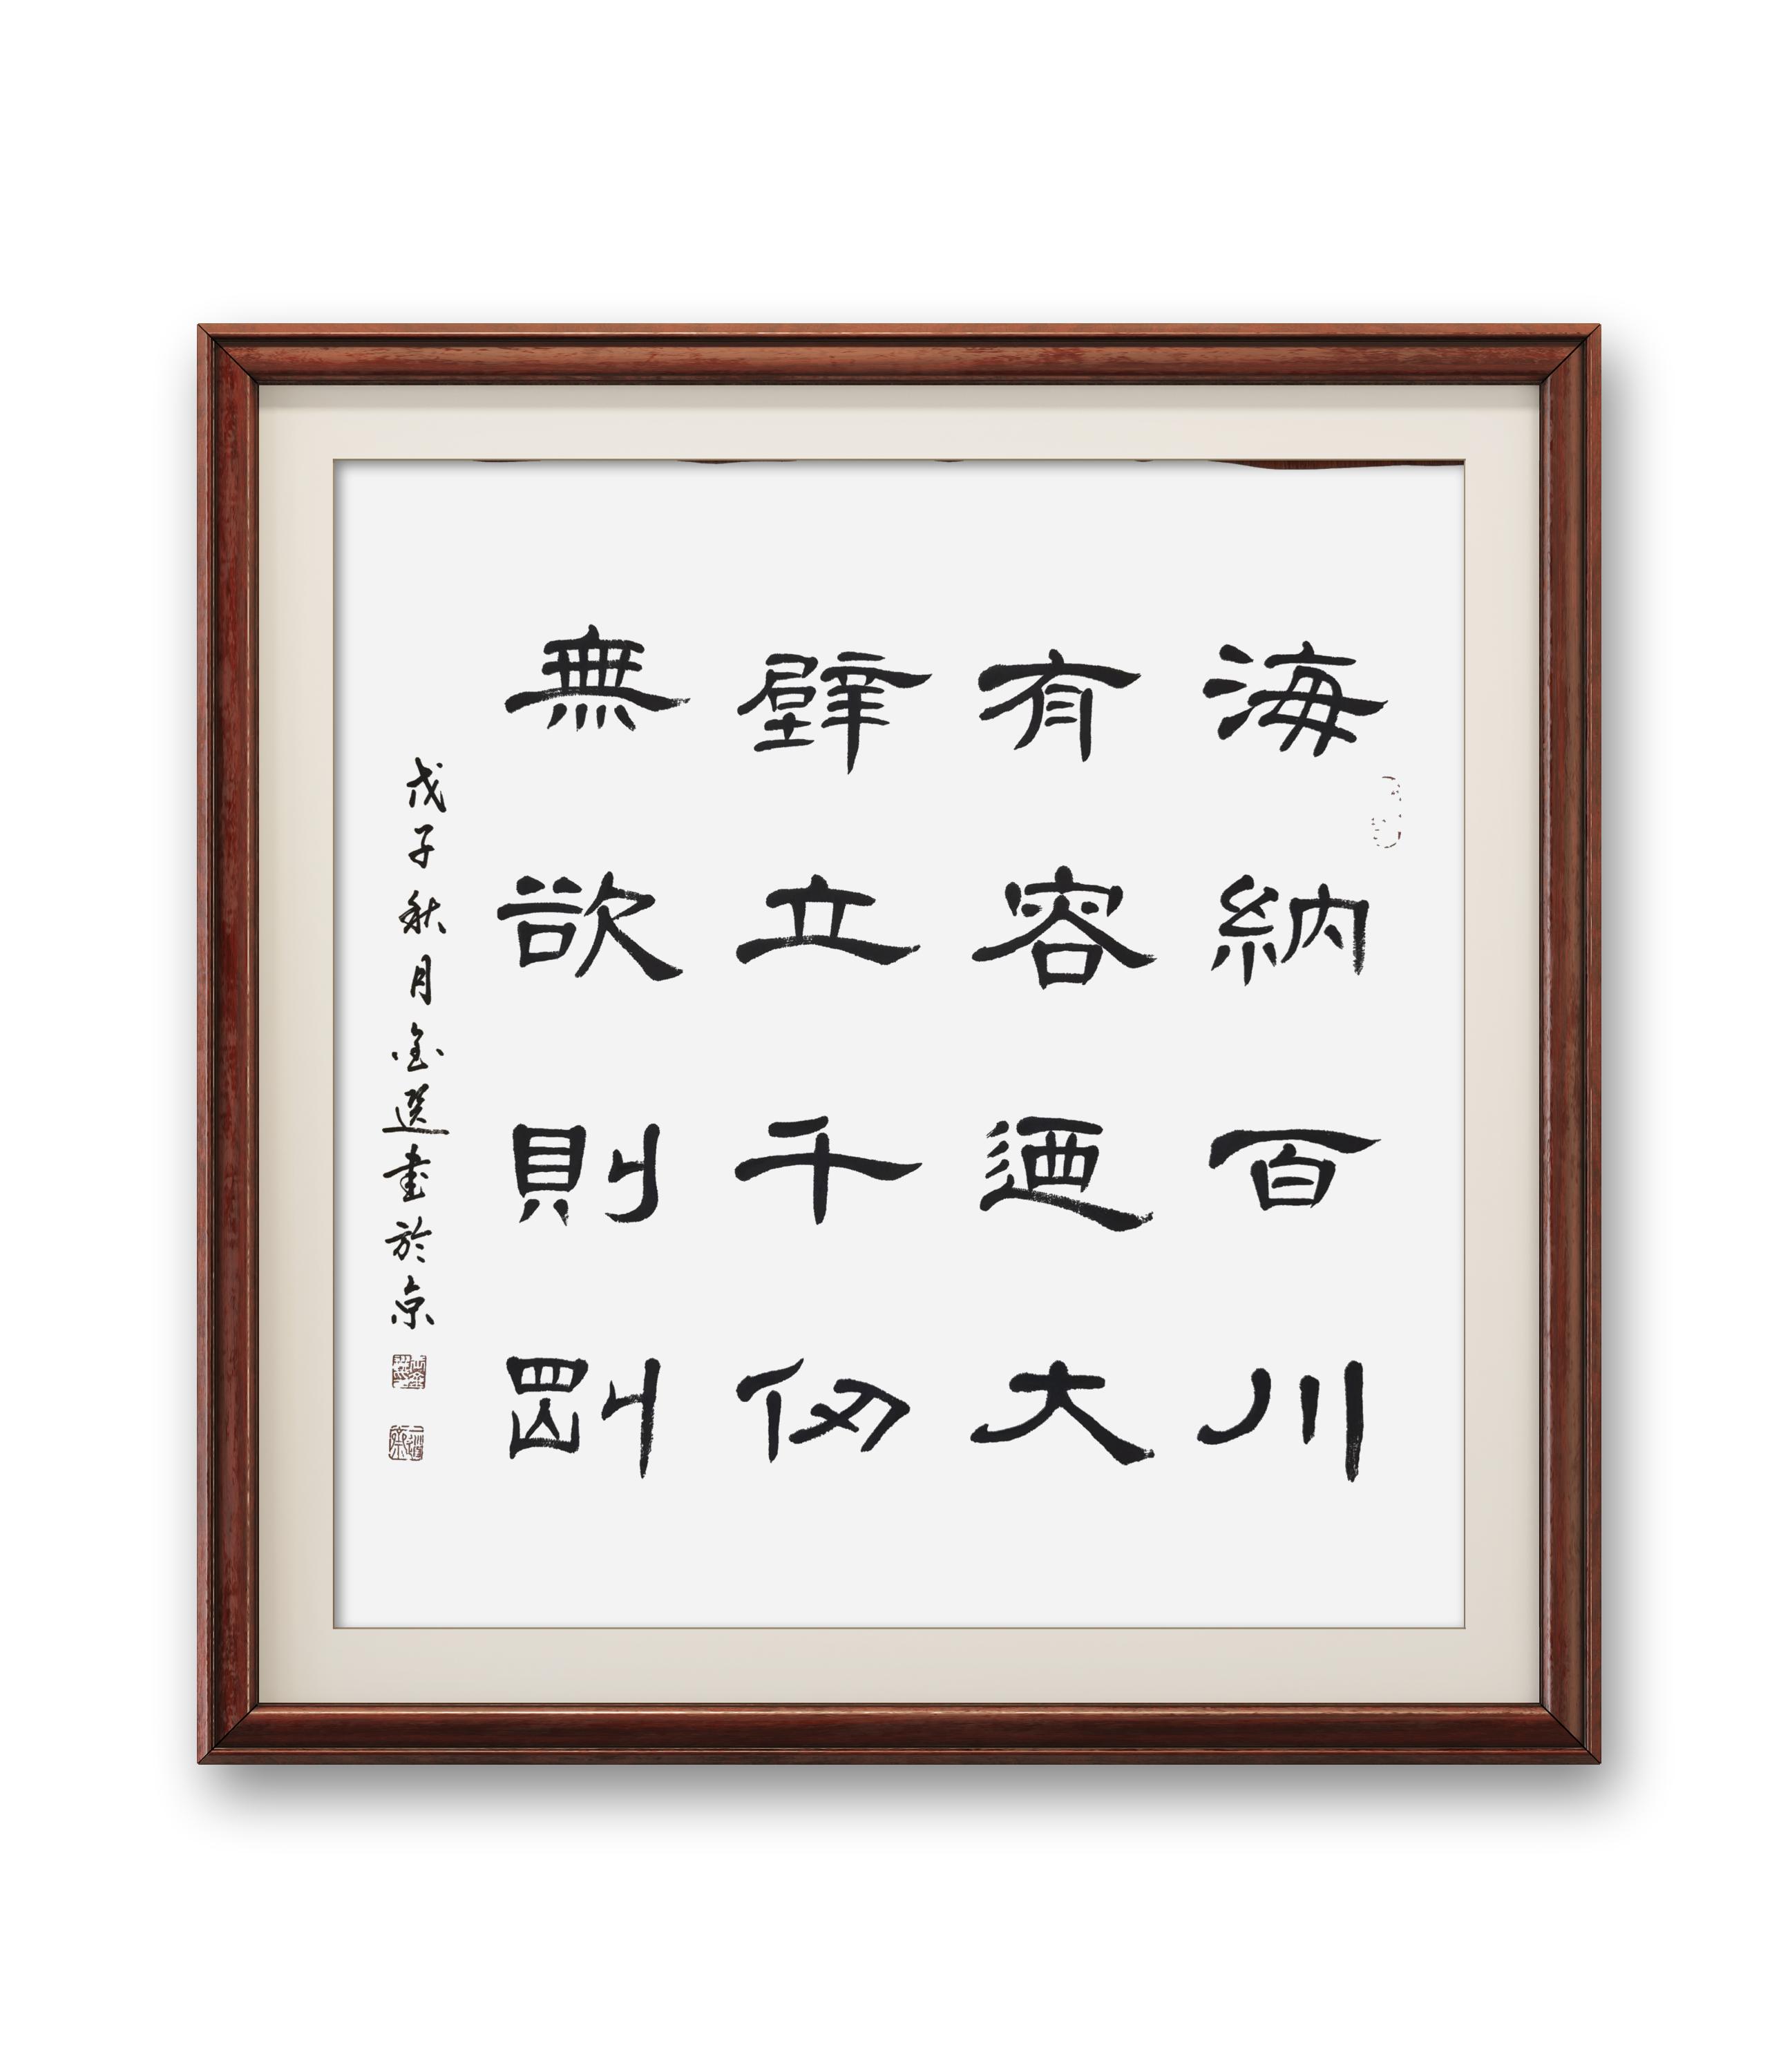 海納百川
有容迺大
壁立千仞
無欲則剛
戊子秋月金選書於京